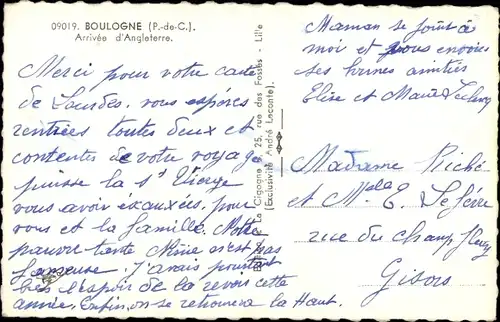 09019. BOULOGNE (P.-de-C.).
Arrivée d'Angleterre.
Merci pour votre carte
de Lourdes. vous espérons
rentrées toutes deux et
contentes de votre voyage
puisse la Ste Vierge
vous avoir exaucées, pour
vous et la famille. Notre
pauvre tante Mimie n'est pas
J'avais pourtant
bes espoir de la revoir cette
année. Enfin, on se retrouvera là Haut.
La Cigogne 25, rue des Fossés - Lille
(Exclusivité André Leconte).
Maman se joint à
moi et vous envoie
ses bonnes amitiés
Elise et Marie
Madame Riché
et Mlle E. Lefèvre
rue du champ fleury
Gisors